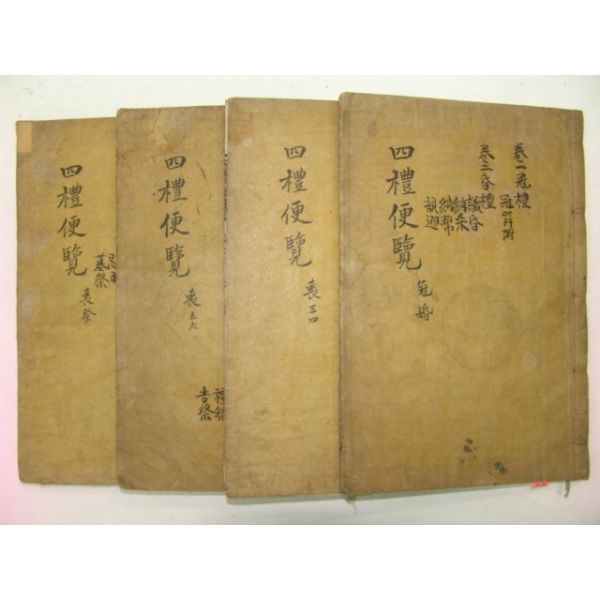 卷一冠禮
冠笄附
卷二昏禮
議昏
納采
納幣
親迎
四禮便覽
冠婚
四禮便覽
喪三四
四禮便覽
喪五六
吉祭
四禮便覽
喪祭
墓祭